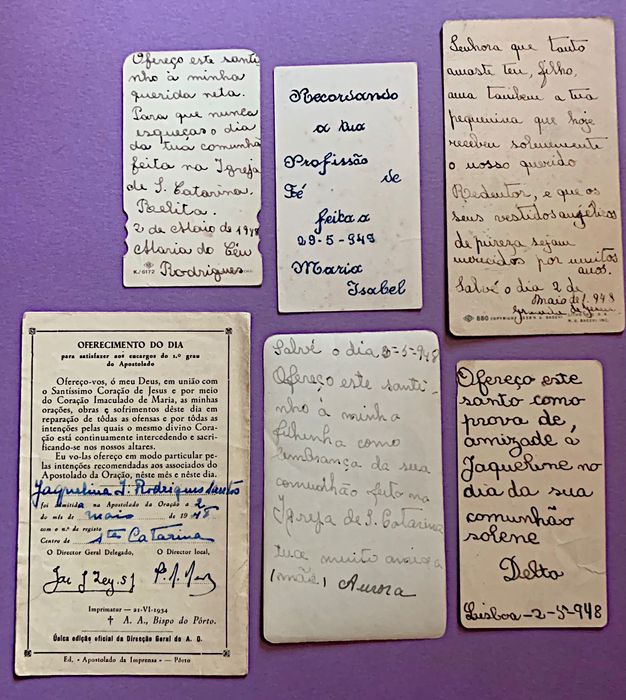 Ofereço este santi
nho à minha
querida neta.
Para que nunca
esqueças o dia
da tua comunhão
feita na Igreja
de S. Catarina.
Belita.
2 de Maio de 1948
Maria do Céu
Rodrigues
K/6172
Recordando
a tua
Profissão
de
Fé
feita a
29-5-949
Maria
Isabel
Senhora que tanto
amaste teu, filho,
ama tambem a tua
pequenina que hoje
recebeu solenemente
o nosso querido
Redentor, e que os
seus vestidos angélicos
de pureza sejam
merecidos por muitos
anos.
Salvé o dia 2 de
maio de 1.948
880 COPYRIGHT
N. G. BASEVI INC.
OFERECIMENTO DO DIA
para satisfazer aos encargos do 1.º grau
do Apostolado
Ofereço-vos, ó meu Deus, em união com o
Santíssimo Coração de Jesus e por meio
do Coração Imaculado de Maria, as minhas
orações, obras e sofrimentos dêste dia em
reparação de tôdas as ofensas e por tôdas as
intenções pelas quais o mesmo divino Cora-
ção está continuamente intercedendo e sacrifi-
cando-se nos nossos altares.
Eu vo-las ofereço em modo particular pe-
las intenções recomendadas aos associados do
Apostolado da Oração, nêste mês e nêste dia.
Jaquelina J. Rodrigues Santos
foi admitida no Apostolado da Oração a 2
do mês de maio de 1948
com o n.º de registo
Centro de Sta Catarina
O Director Geral Delegado, O Director local,
Imprimatur — 21-VI-1934
† A. A., Bispo do Pôrto.
Única edição oficial da Direcção Geral do A. O.
Ed. «Apostolado da Imprensa» — Pôrto
Salvé o dia 2-5-948
Ofereço este santi-
nho à minha
filhinha como
lembrança da sua
comunhão feita na
Igreja de S. Catarina
tua muito amiga
(mãe) Aurora
Ofereço este
santo como
prova de,
amizade a
Jaquelene no
dia da sua
comunhão
solene
Delta
Lisboa-2-5-948